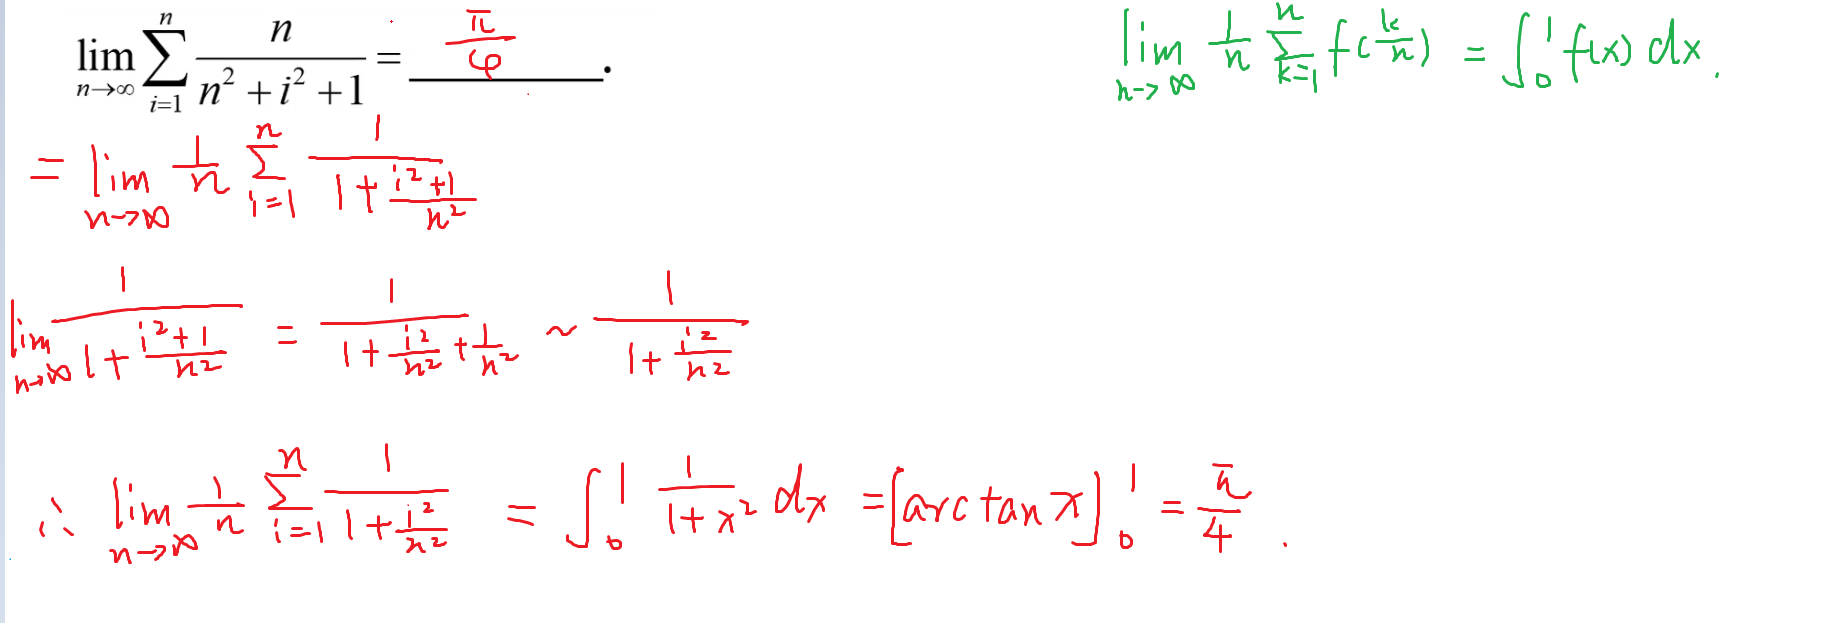 lim_{n→∞} ∑_{i=1}^{n} n/(n²+i²+1) = π/4.
lim_{n→∞} 1/n ∑_{k=1}^{n} f(k/n) = ∫₀¹ f(x) dx.
= lim_{n→∞} 1/n ∑_{i=1}^{n} 1/(1+(i²+1)/n²)
lim_{n→∞} 1/(1+(i²+1)/n²) = 1/(1+i²/n²+1/n²) ~ 1/(1+i²/n²)
∴ lim_{n→∞} 1/n ∑_{i=1}^{n} 1/(1+i²/n²) = ∫₀¹ 1/(1+x²) dx = [arctan x]₀¹ = π/4.